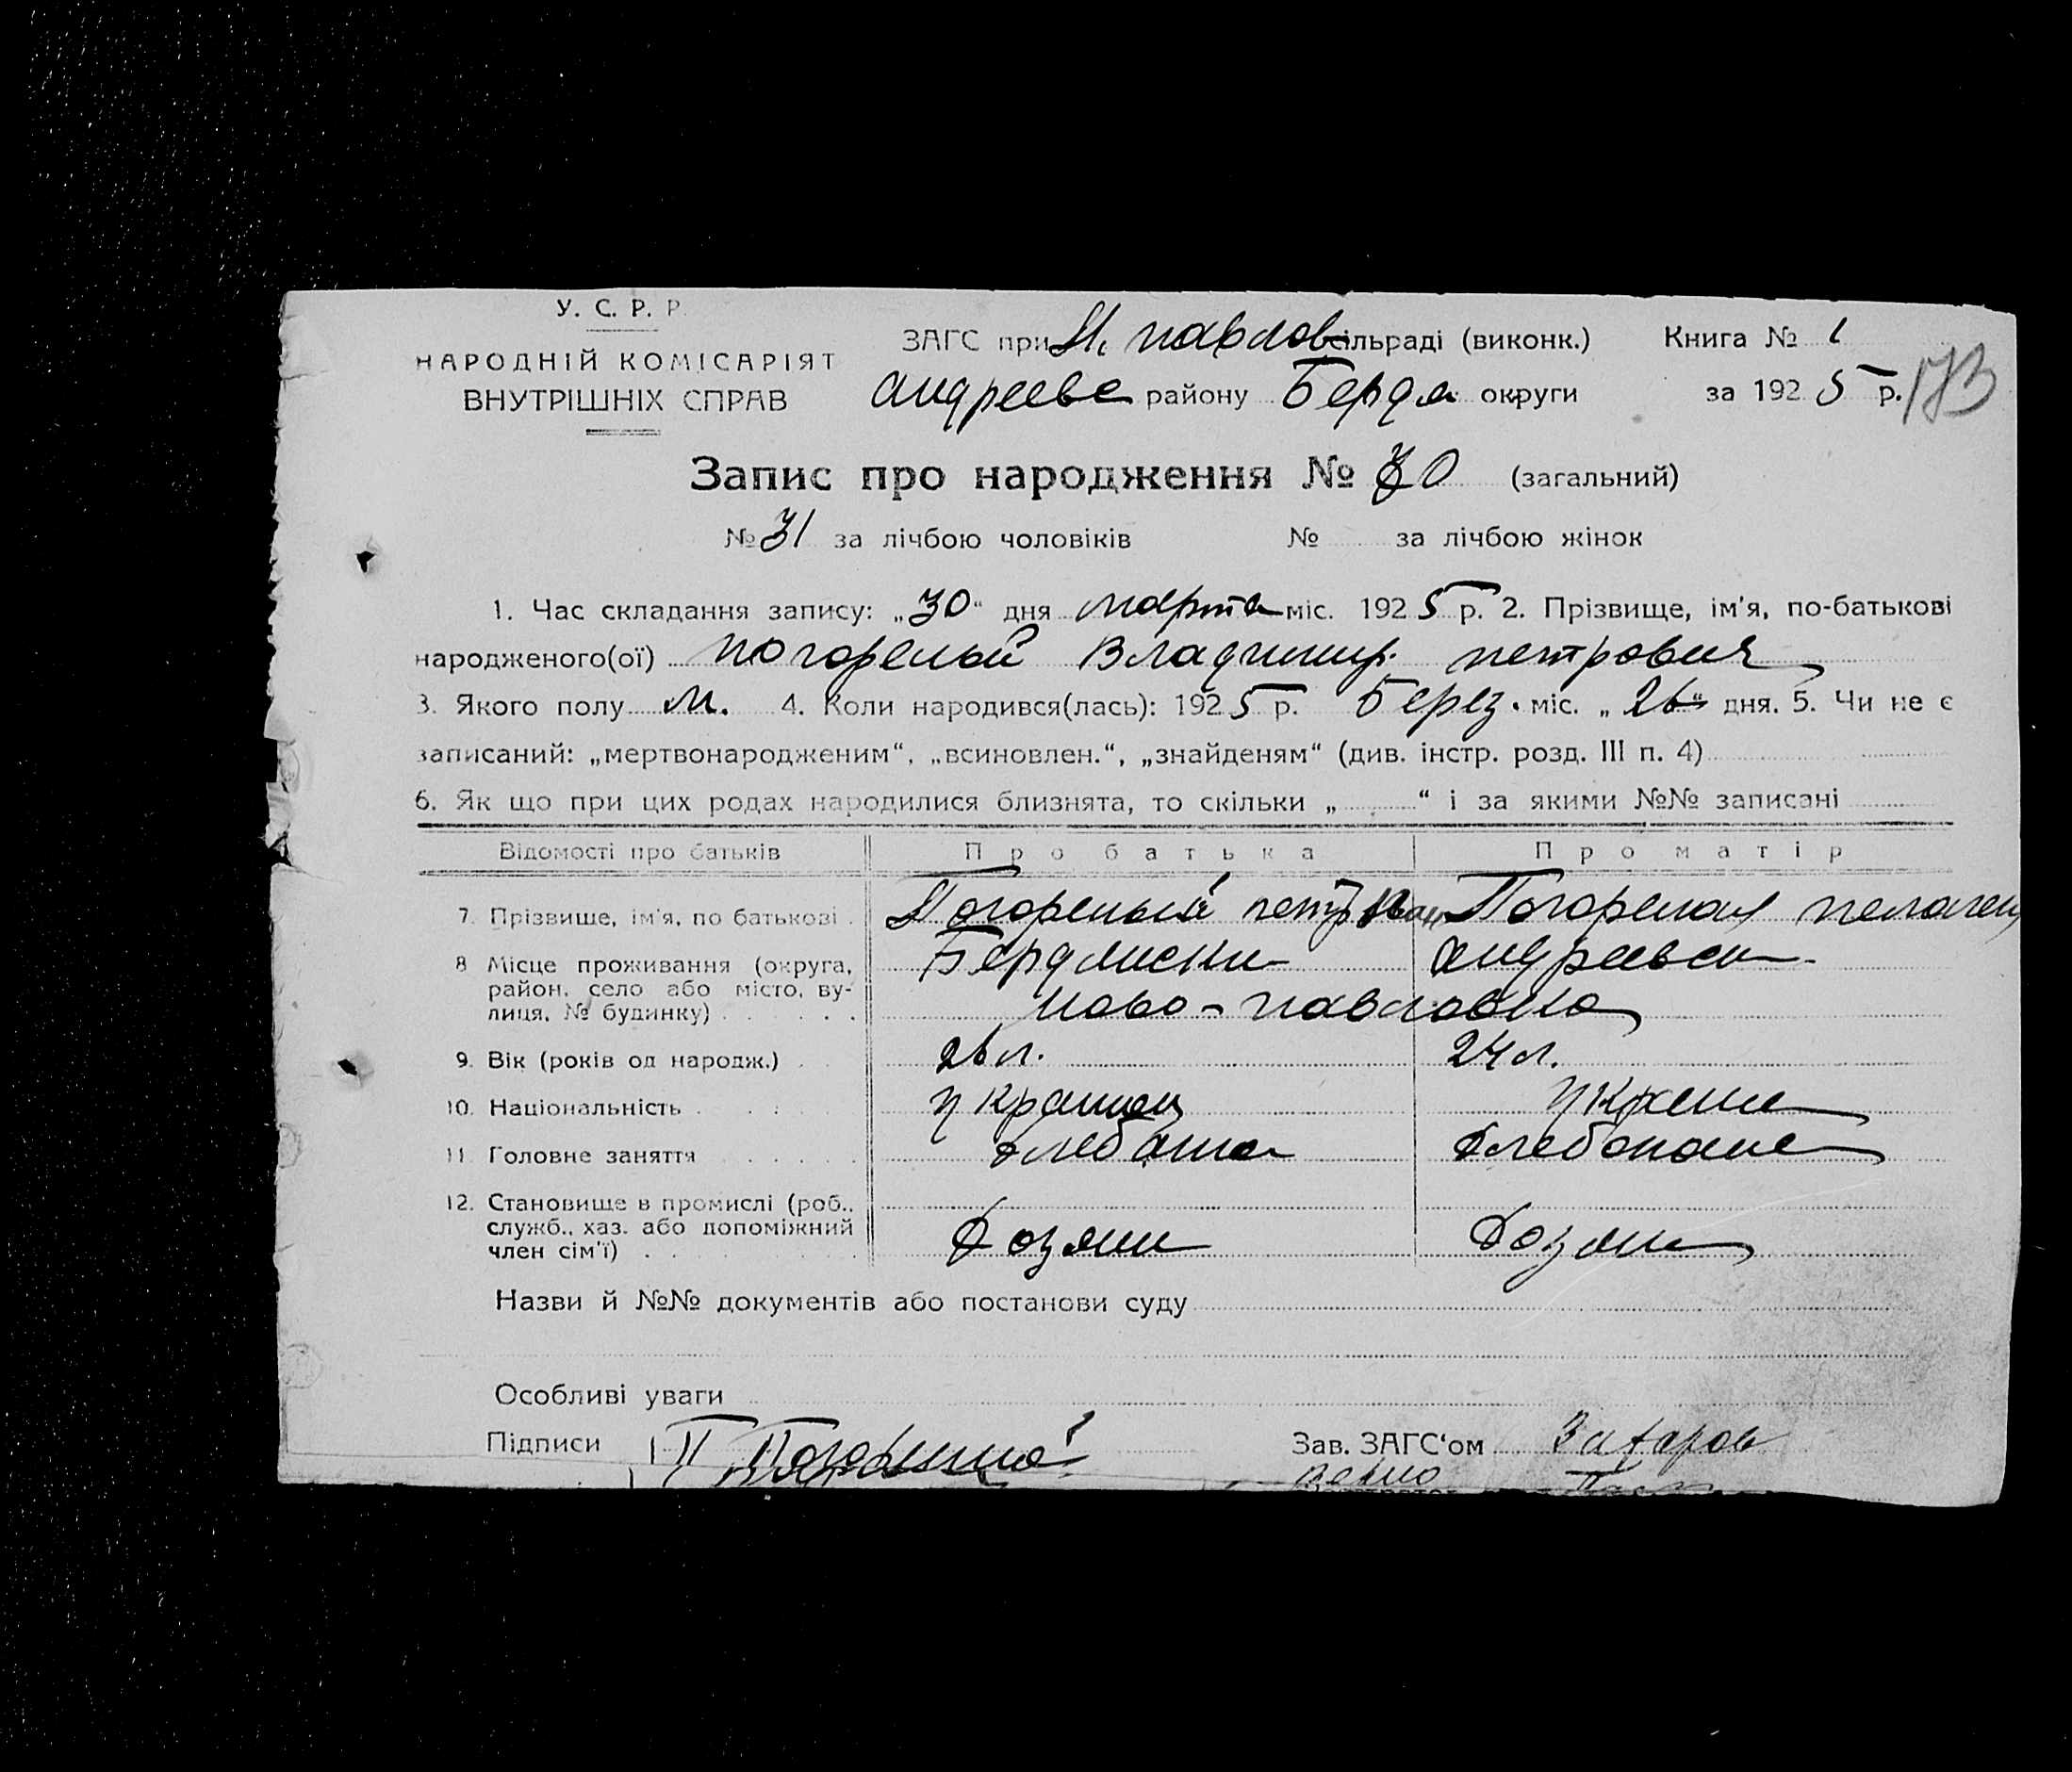 У. С. Р. Р.
НАРОДНІЙ КОМІСАРІЯТ
ВНУТРІШНІХ СПРАВ
ЗАГС при Н. павлов сільраді (виконк.) Книга № 1
андреевс району Бердя округи за 1925 р. 173
Запис про народження № 30 (загальний)
№ 31 за лічбою чоловіків № за лічбою жінок
1. Час складання запису: „30“ дня марта міс. 1925 р. 2. Прізвище, ім'я, по-батькові
народженого(ої) погорелый Владимир петрович
3. Якого полу м. 4. Коли народився(лась): 1925 р. Берез. міс. „26“ дня. 5. Чи не є
записаний: „мертвонародженим“, „всиновлен.“, „знайденям“ (див. інстр. розд. III п. 4)
6. Як що при цих родах народилися близнята, то скільки „ “ і за якими №№ записані
Відомості про батьків Про батька Про матір
7. Прізвище, ім'я, по батькові Погорелый петр Иван Погорелая пелагея
8 Місце проживання (округа, Бердянски андреевск
район, село або місто, ву-
лиця, № будинку) Ново-павловка
9. Вік (років од народж.) 26 л. 24 л.
10. Національність украинец украин
11 Головне заняття хлебопаше
12. Становище в промислі (роб.,
служб., хаз. або допоміжний
член сім'ї) хозяин хозяи
Назви й №№ документів або постанови суду
Особливі уваги
Підписи П Погорелый Зав. ЗАГС'ом Захаров